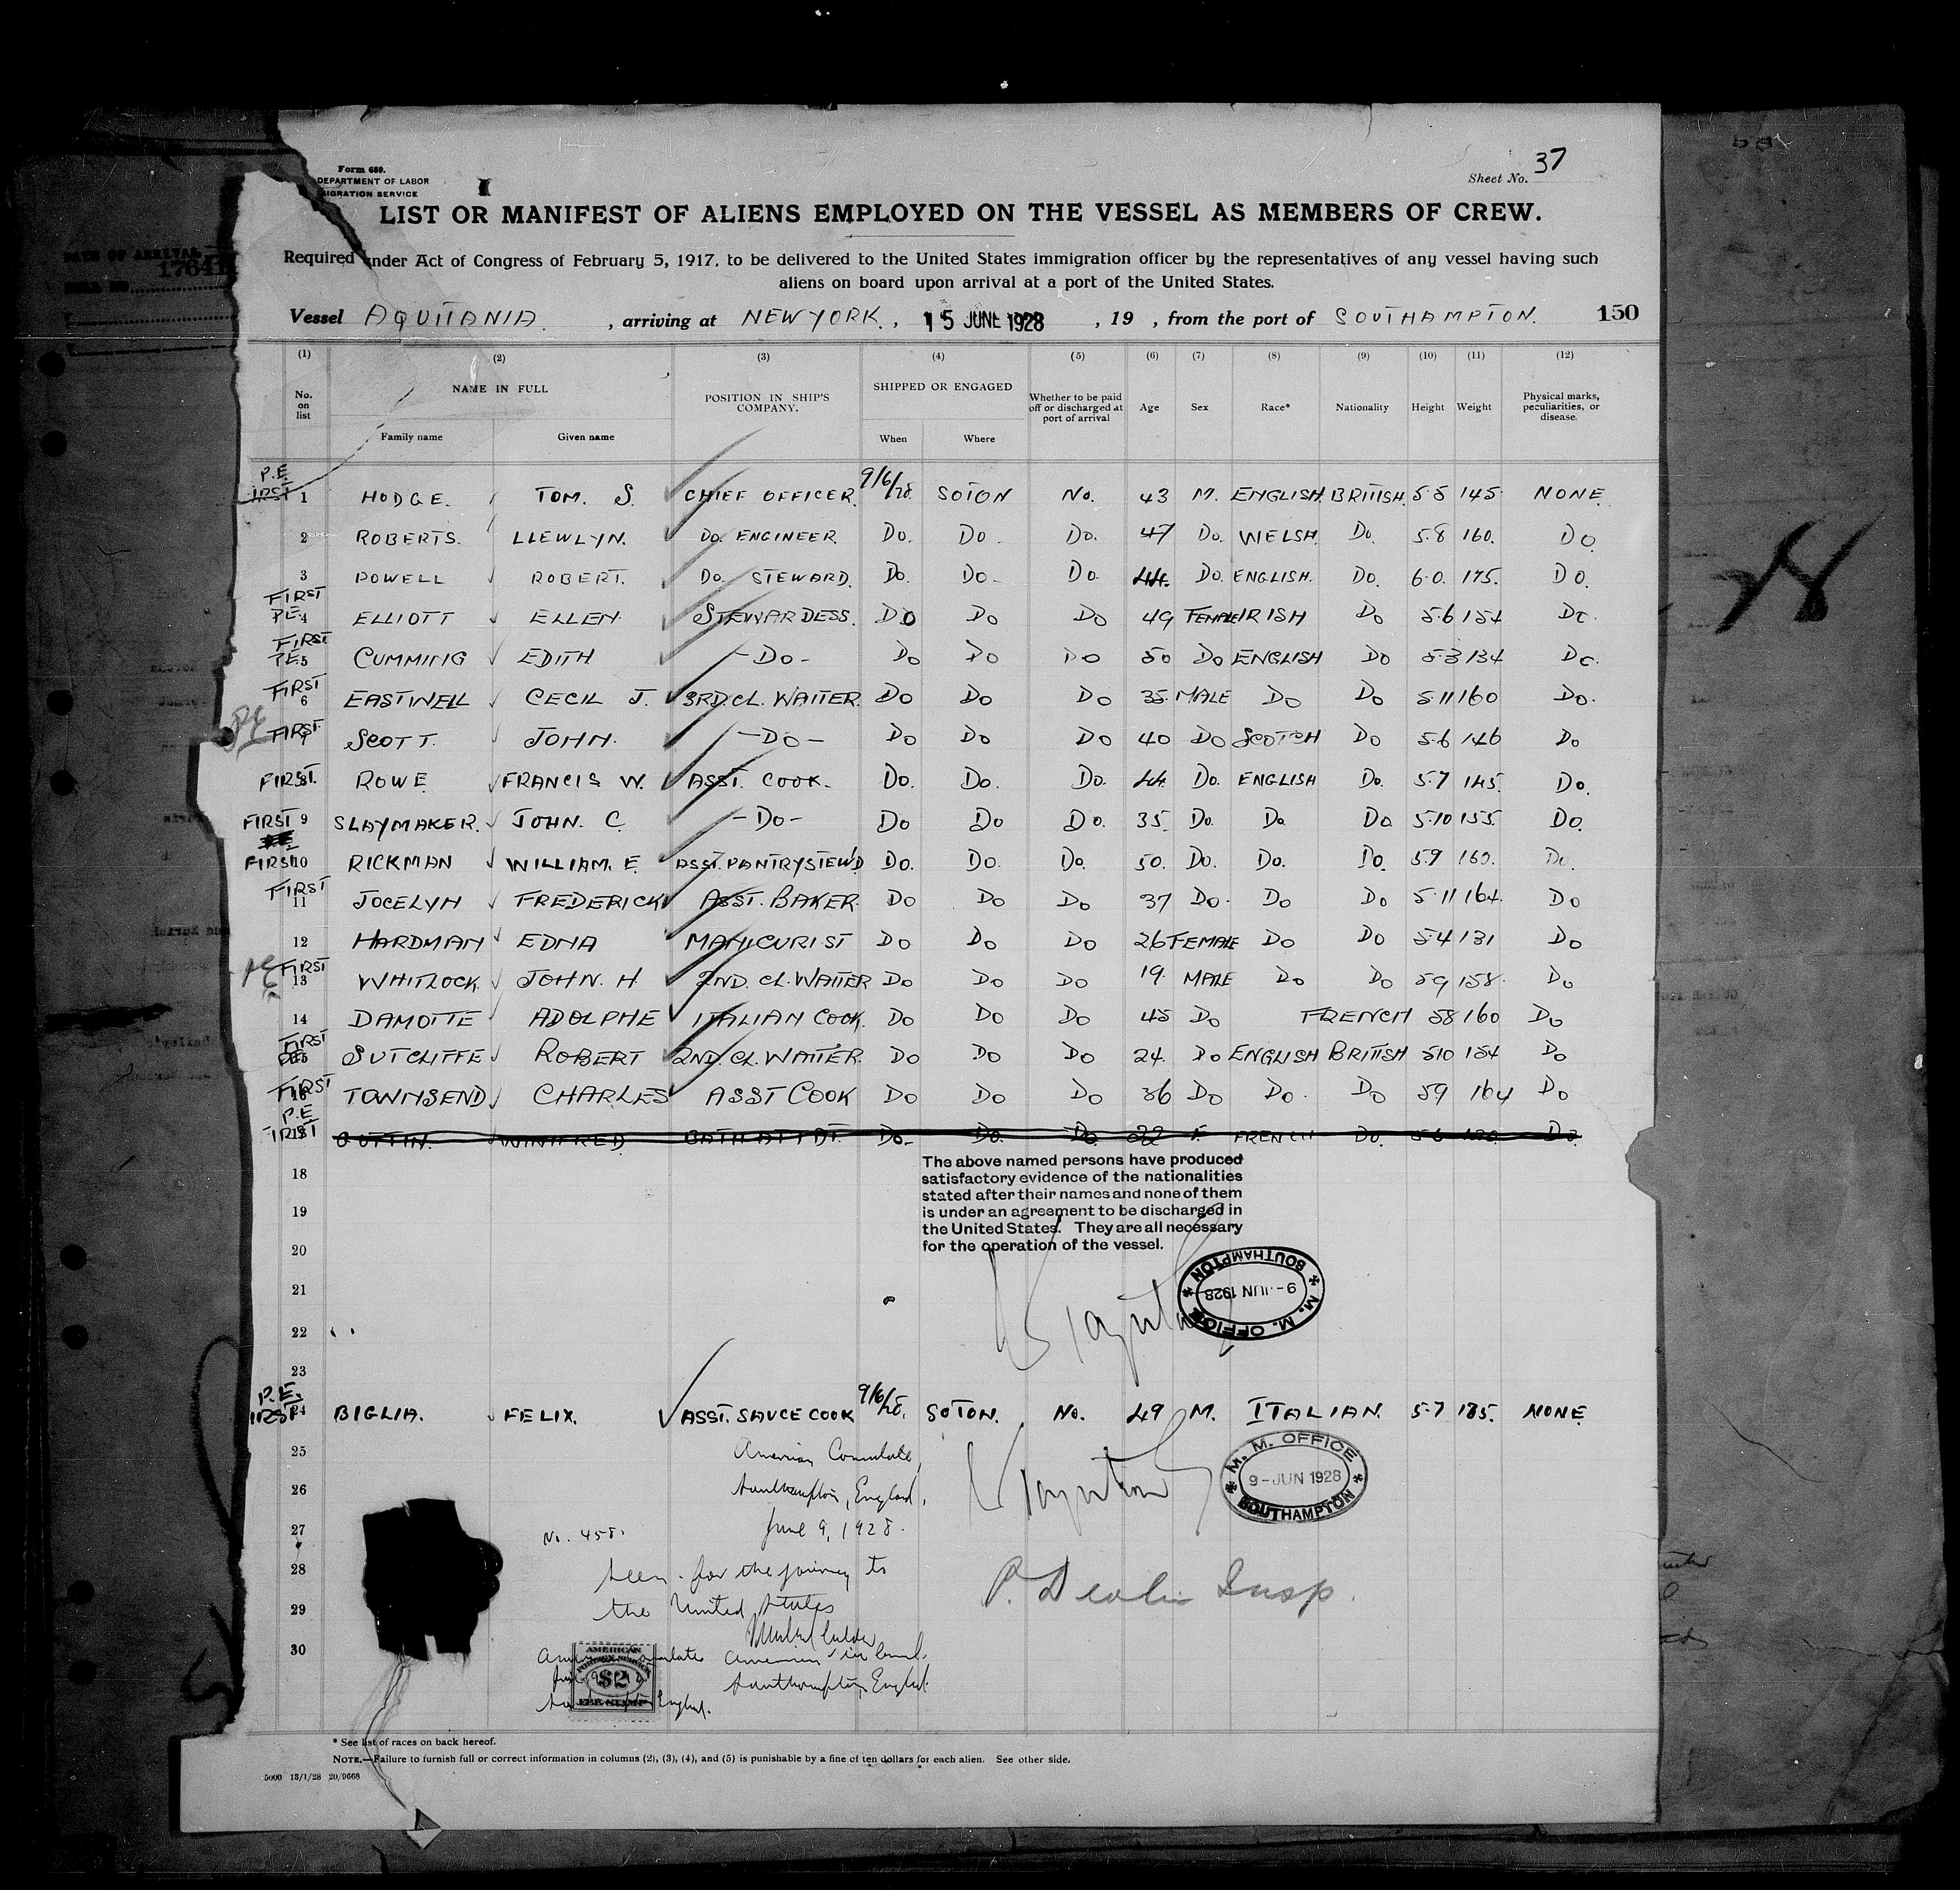 58
Sheet No. 37
Form 689.
DEPARTMENT OF LABOR
IGRATION SERVICE
DATE OF ARRIVAL
LIST OR MANIFEST OF ALIENS EMPLOYED ON THE VESSEL AS MEMBERS OF CREW.
Required under Act of Congress of February 5, 1917, to be delivered to the United States immigration officer by the representatives of any vessel having such
aliens on board upon arrival at a port of the United States.
Vessel AQUITANIA, arriving at NEW YORK, 15 JUNE 1928, 19 , from the port of SOUTHAMPTON. 150
(1) (2) (3) (4) (5) (6) (7) (8) (9) (10) (11) (12)
No. on list NAME IN FULL Family name Given name POSITION IN SHIP'S COMPANY. SHIPPED OR ENGAGED When Where Whether to be paid off or discharged at port of arrival Age Sex Race* Nationality Height Weight Physical marks, peculiarities, or disease.
P.E.
IRST 1 HODGE. TOM. S. CHIEF OFFICER. 9/6/28. SOTON No. 43 M. ENGLISH. BRITISH. 5.8 145. NONE
2 ROBERTS. LLEWLYN. Do. ENGINEER. Do. Do. Do. 47 Do. WELSH. Do. 5.8 160. Do.
3 POWELL ROBERT. Do. STEWARD. Do. Do. Do. 44. Do. ENGLISH. Do. 6.0. 175. Do.
FIRST
P.E. 4 ELLIOTT ELLEN. STEWARDESS. Do Do Do 49 FEMALE IRISH Do 5.6 154 Do.
FIRST
P.E. 5 CUMMING EDITH -Do- Do Do Do 50 Do ENGLISH Do 5.3 134 Do.
FIRST
6 EASTWELL CECIL J. 3RD. CL. WAITER. Do Do Do 35 MALE Do Do 5.11 160 Do.
PE
FIRST 7 SCOTT. JOHN. -Do- Do Do Do 40 Do SCOTCH Do 5.6 146 Do
FIRST. 8 ROWE FRANCIS W. ASST. COOK. Do. Do. Do. 44. Do. ENGLISH Do. 5.7 145. Do.
FIRST 9 SLAYMAKER. JOHN. C. -Do- Do Do Do. 35. Do. Do. Do. 5.10 155. Do.
FIRST 10 RICKMAN WILLIAM. E. ASST. PANTRYSTEW'D Do. Do. Do. 50. Do. Do. Do. 5.9 160. Do.
FIRST
11 JOCELYN FREDERICK ASST. BAKER. Do Do Do 37 Do. Do Do 5.11 164. Do
12 HARDMAN EDNA MANICURIST Do Do Do 26 FEMALE Do Do 5.4 131 Do
PE FIRST
13 WHITLOCK JOHN. H. 2ND. CL. WAITER Do Do Do 19. MALE Do Do 5.9 158. Do
14 DAMOTTE ADOLPHE ITALIAN COOK. Do Do Do 45 Do FRENCH 5.8 160 Do
FIRST
15 SUTCLIFFE ROBERT 2ND. CL. WAITER. Do Do Do 24. Do ENGLISH BRITISH 5.10 154 Do
FIRST
16 TOWNSEND CHARLES ASST COOK Do Do Do 36 Do Do. Do 5.9 164 Do
P.E
IRST 17 WINIFRED BATH ATTDT. Do. Do. Do. 22 F. FRENCH Do. 5.6 Do.
The above named persons have produced
satisfactory evidence of the nationalities
stated after their names and none of them
is under an agreement to be discharged in
the United States. They are all necessary
for the operation of the vessel.
18
19
20
21
22
23
M. M. OFFICE
9-JUN 1928
SOUTHAMPTON
P.E.
IRST 24 BIGLIA. FELIX. ASST. SAUCE COOK 9/6/28. SOTON. No. 49 M. ITALIAN. 5.7 185. NONE
25
26
27
28
29
30
American Consulate,
Southampton, England,
June 9, 1928.
No. 458.
Seen for the journey to
the United States
Southampton, England.
M. M. OFFICE
9-JUN 1928
SOUTHAMPTON
P. Devlin Insp.
AMERICAN
FOREIGN SERVICE
$2
FEE STAMP
* See list of races on back hereof.
NOTE.—Failure to furnish full or correct information in columns (2), (3), (4), and (5) is punishable by a fine of ten dollars for each alien. See other side.
5000 13/1/28 20/9668